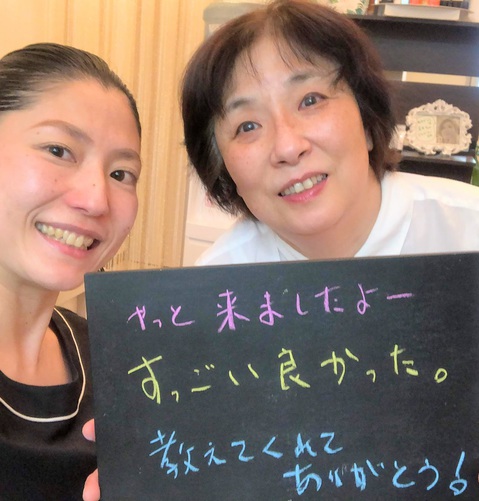 やっと 来ましたよー
すっごい良かった。
教えてくれて
ありがとう!